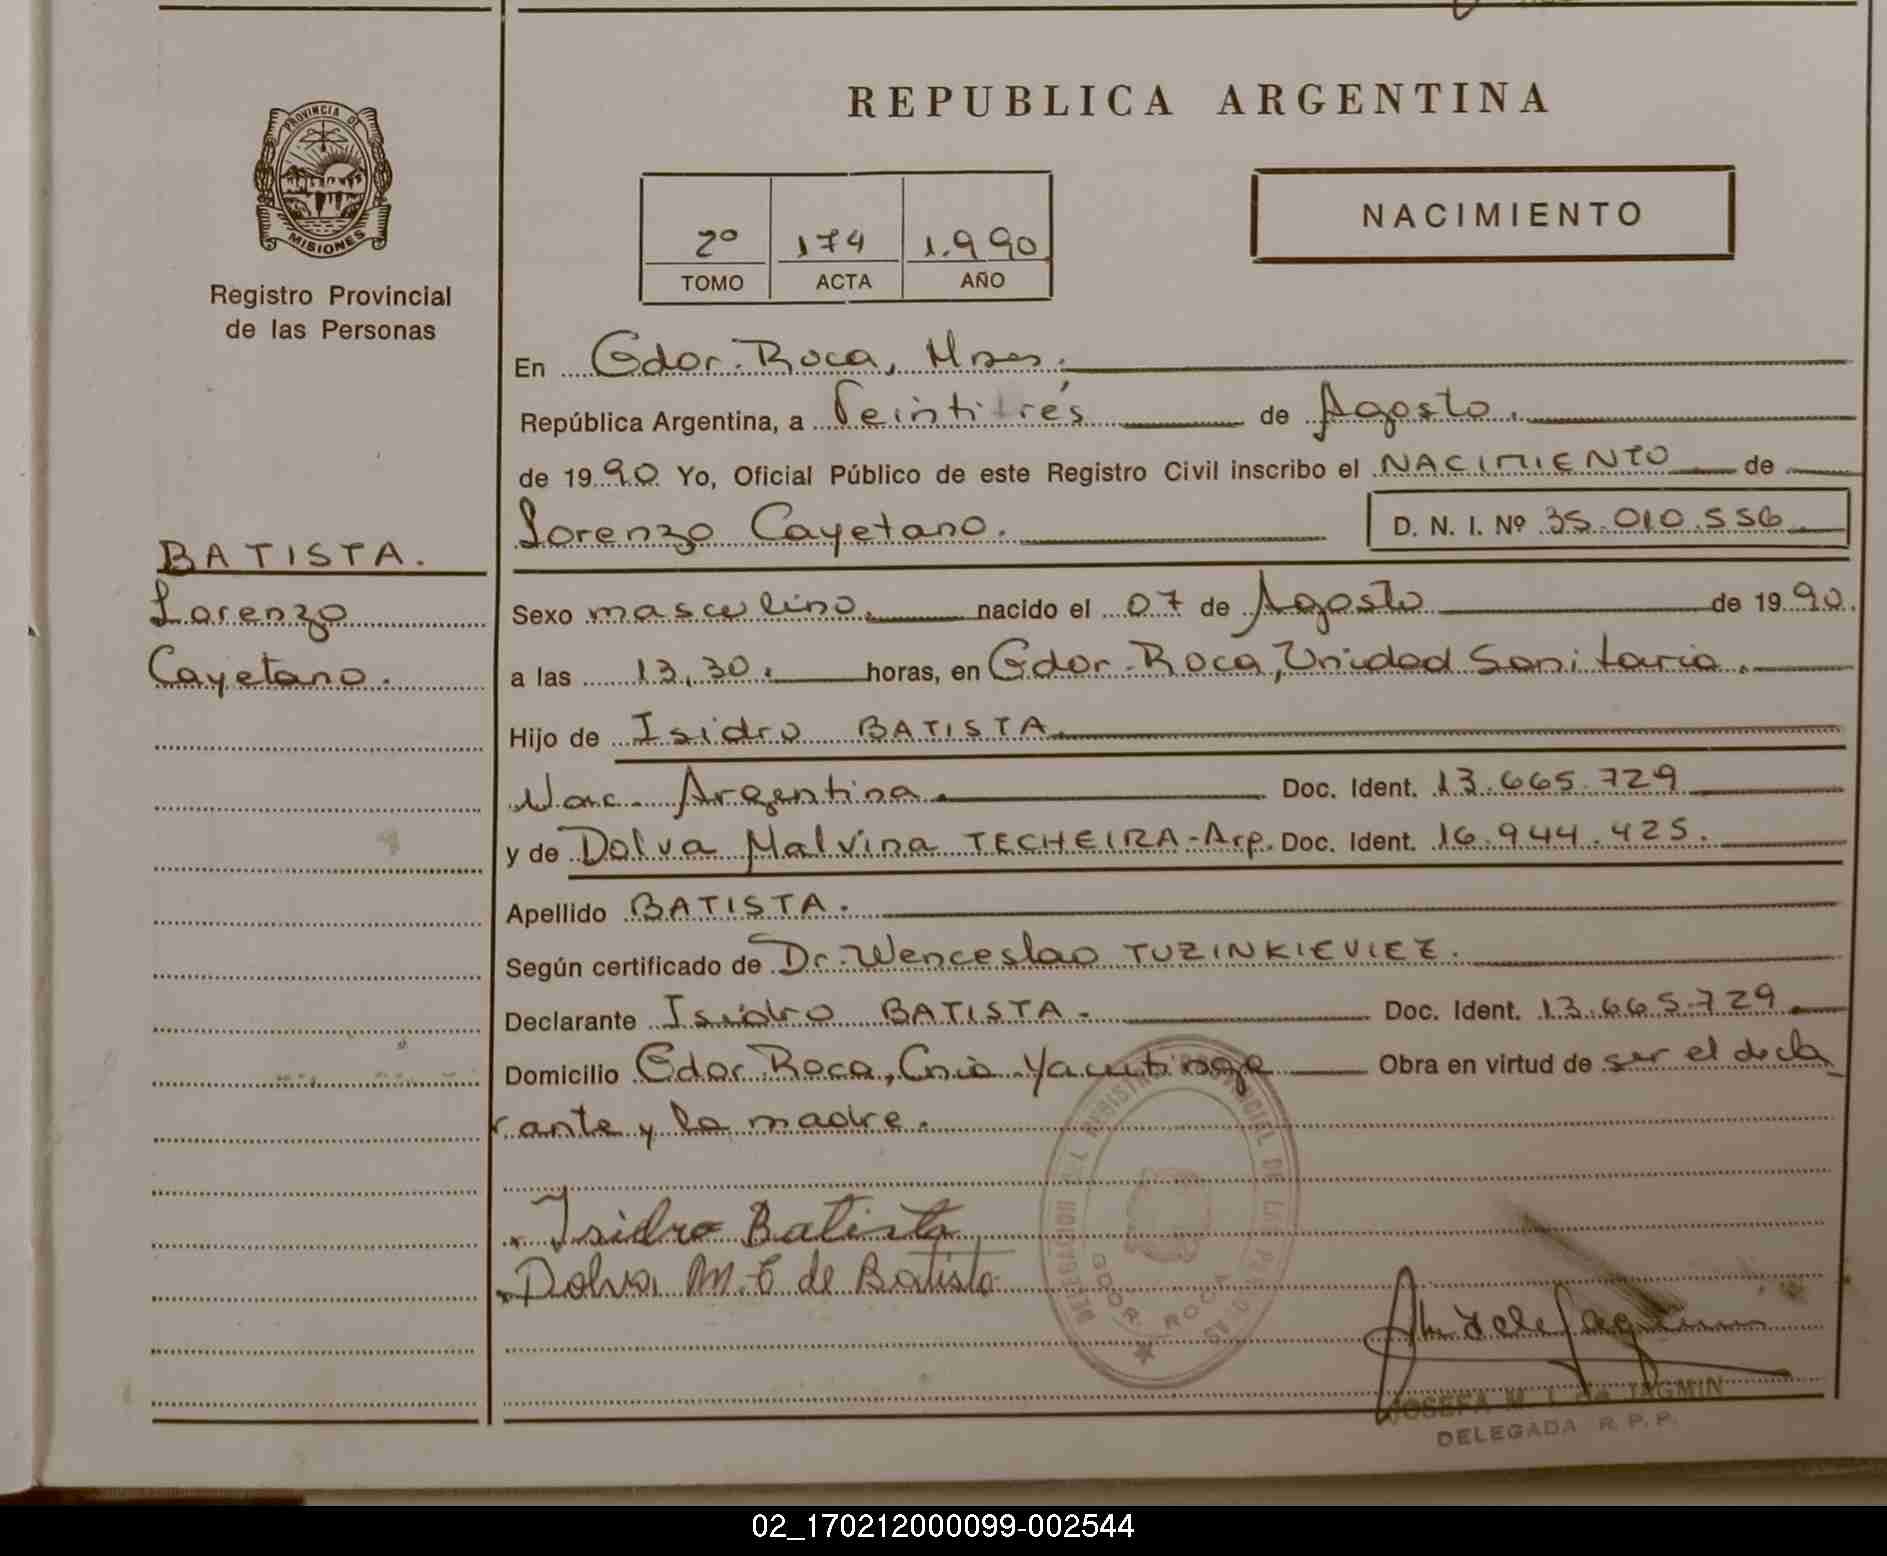 PROVINCIA DE
MISIONES
Registro Provincial
de las Personas
BATISTA.
Lorenzo
Cayetano.
REPUBLICA ARGENTINA
2º 174 1.990
TOMO ACTA AÑO
NACIMIENTO
En Gdor. Roca, Mnes.
República Argentina, a Veintitrés de Agosto.
de 1990 Yo, Oficial Público de este Registro Civil inscribo el NACIMIENTO de
Lorenzo Cayetano. D. N. I. Nº 35.010.556
Sexo masculino. nacido el 07 de Agosto de 1990.
a las 13,30. horas, en Gdor. Roca, Unidad Sanitaria.
Hijo de Isidro BATISTA.
Nac. Argentina. Doc. Ident. 13.665.729
y de Dolva Malvina TECHEIRA-Arg. Doc. Ident. 16.944.425.
Apellido BATISTA.
Según certificado de Dr. Wenceslao TUZINKIEVIEZ.
Declarante Isidro BATISTA. Doc. Ident. 13.665.729.
Domicilio Gdor. Roca, Cnia Yacutinga Obra en virtud de ser el decla
rante y la madre.
Isidro Batista
Dolva M. T. de Batista
DELEGACION REGISTRO PROVINCIAL DE LAS PERSONAS
GDOR ROCA
JOSEFA M. I. de JAGMIN
DELEGADA R. P. P.
02_170212000099-002544